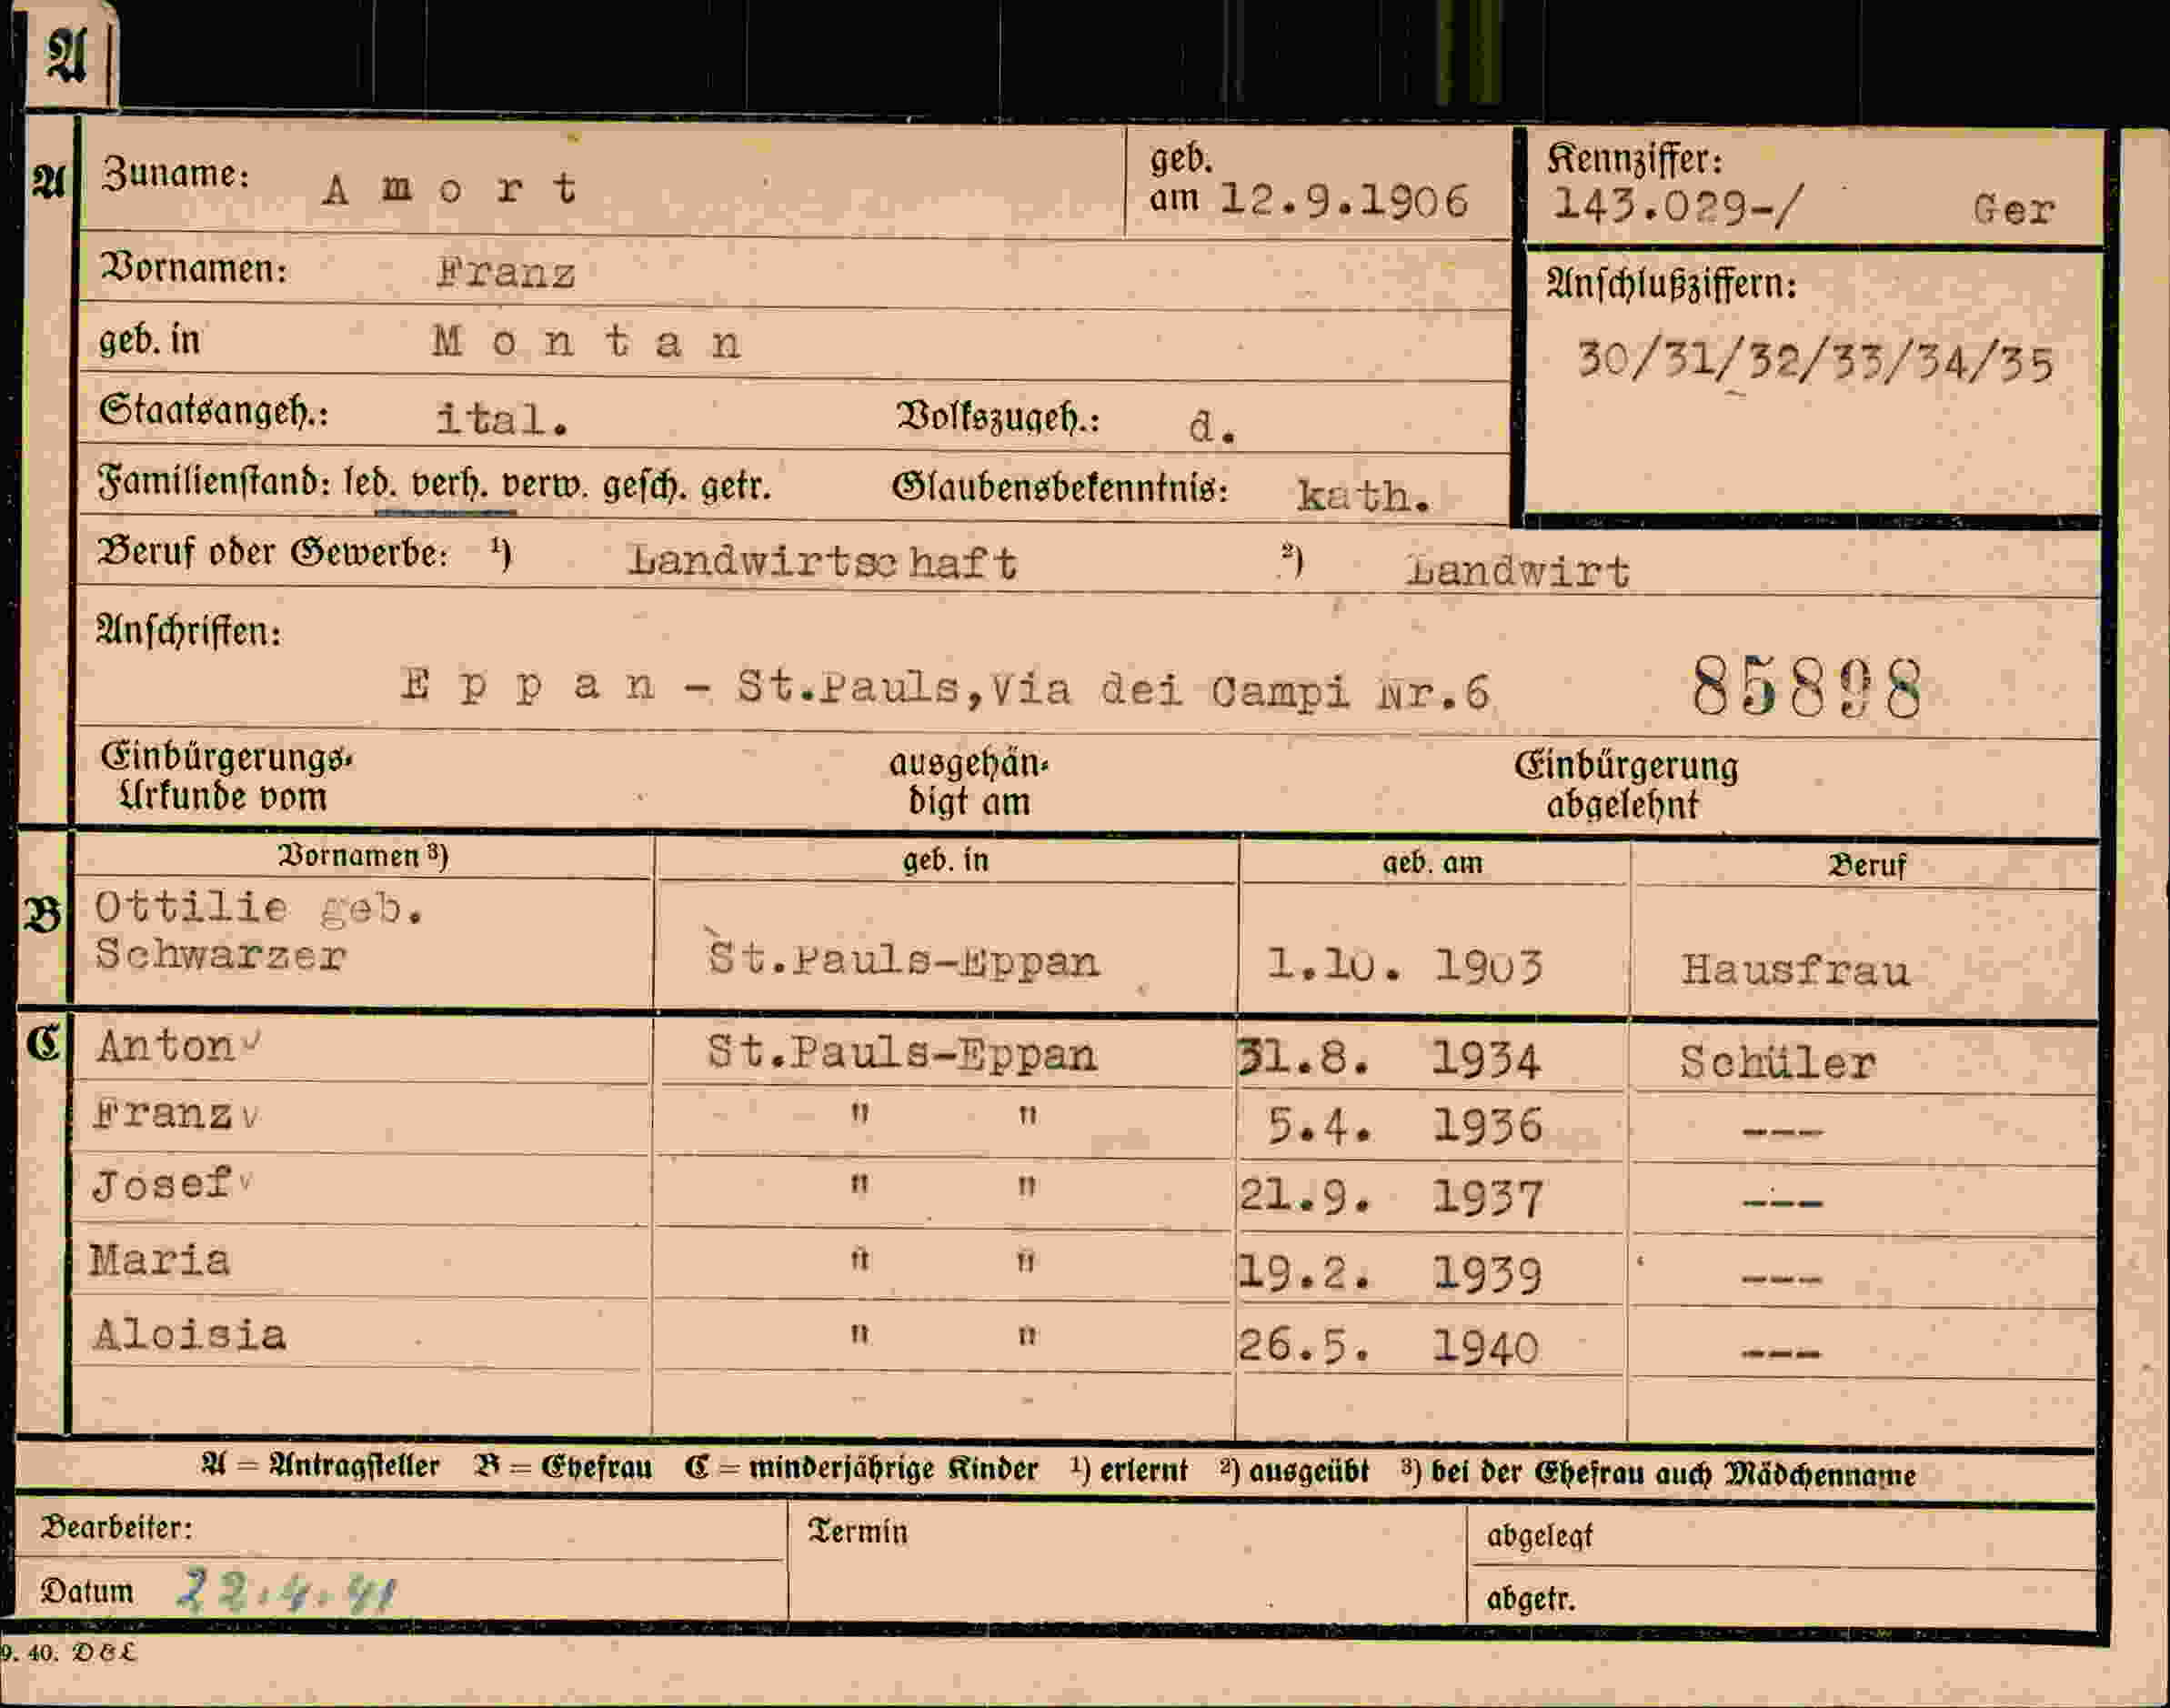 A
A Zuname: Amort geb. am 12.9.1906 Kennziffer: 143.029-/ Ger
Vornamen: Franz
Anschlußziffern:
geb. in Montan
30/31/32/33/34/35
Staatsangeh.: ital. Volkszugeh.: d.
Familienstand: led. verh. verw. gesch. getr. Glaubensbekenntnis: kath.
Beruf oder Gewerbe: ¹) Landwirtschaft ²) Landwirt
Anschriften:
Eppan - St.Pauls,Via dei Campi Nr.6 85898
Einbürgerungs-Urkunde vom ausgehän-digt am Einbürgerung abgelehnt
Vornamen ³) geb. in geb. am Beruf
B Ottilie geb.
Schwarzer St.Pauls-Eppan 1.10. 1903 Hausfrau
C Anton St.Pauls-Eppan 31.8. 1934 Schüler
Franz " " 5.4. 1936 ---
Josef " " 21.9. 1937 ---
Maria " " 19.2. 1939 ---
Aloisia " " 26.5. 1940 ---
A = Antragsteller B = Ehefrau C = minderjährige Kinder ¹) erlernt ²) ausgeübt ³) bei der Ehefrau auch Mädchenname
Bearbeiter: Termin abgelegt
Datum 22.4.41 abgetr.
9. 40. D&L